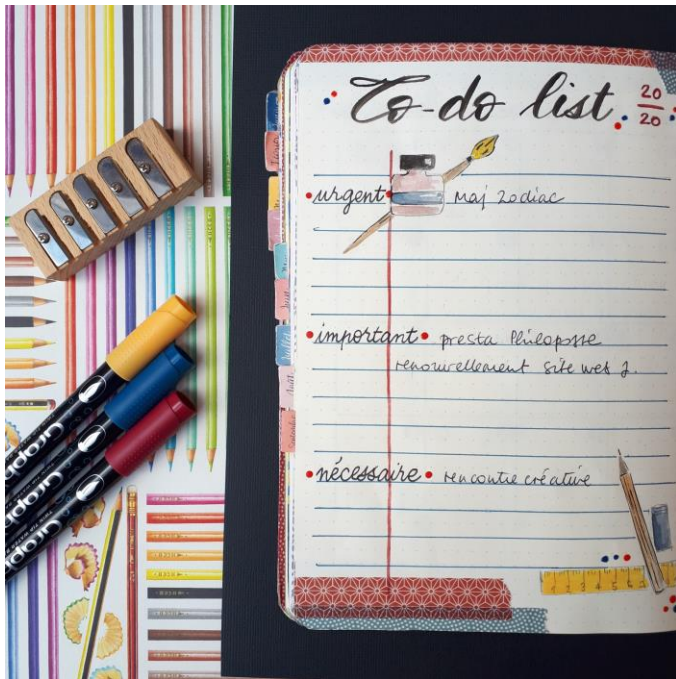 To-do list
20
20
•urgent• Maj Zodiac
•important• presta Philoposse
renouvellement site web J.
•nécessaire• rencontre créative
Juillet
Août
Septembre
Graph
Graph
Graph